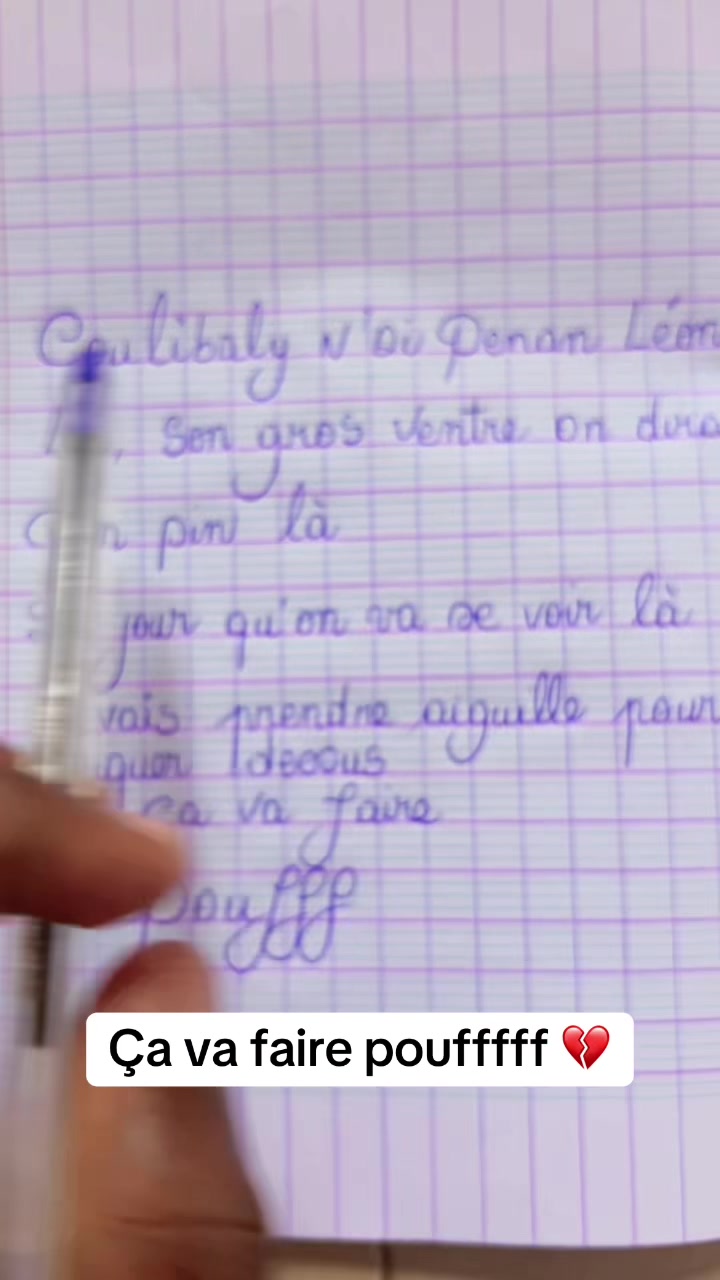 Coulibaly N'Dù Penan Léon
, Son gros ventre on dira
pin là
jour qu'on va se voir là
vais prendre aiguille pour
quer dessus
ça va faire
Poufff
Ça va faire poufffff 💔